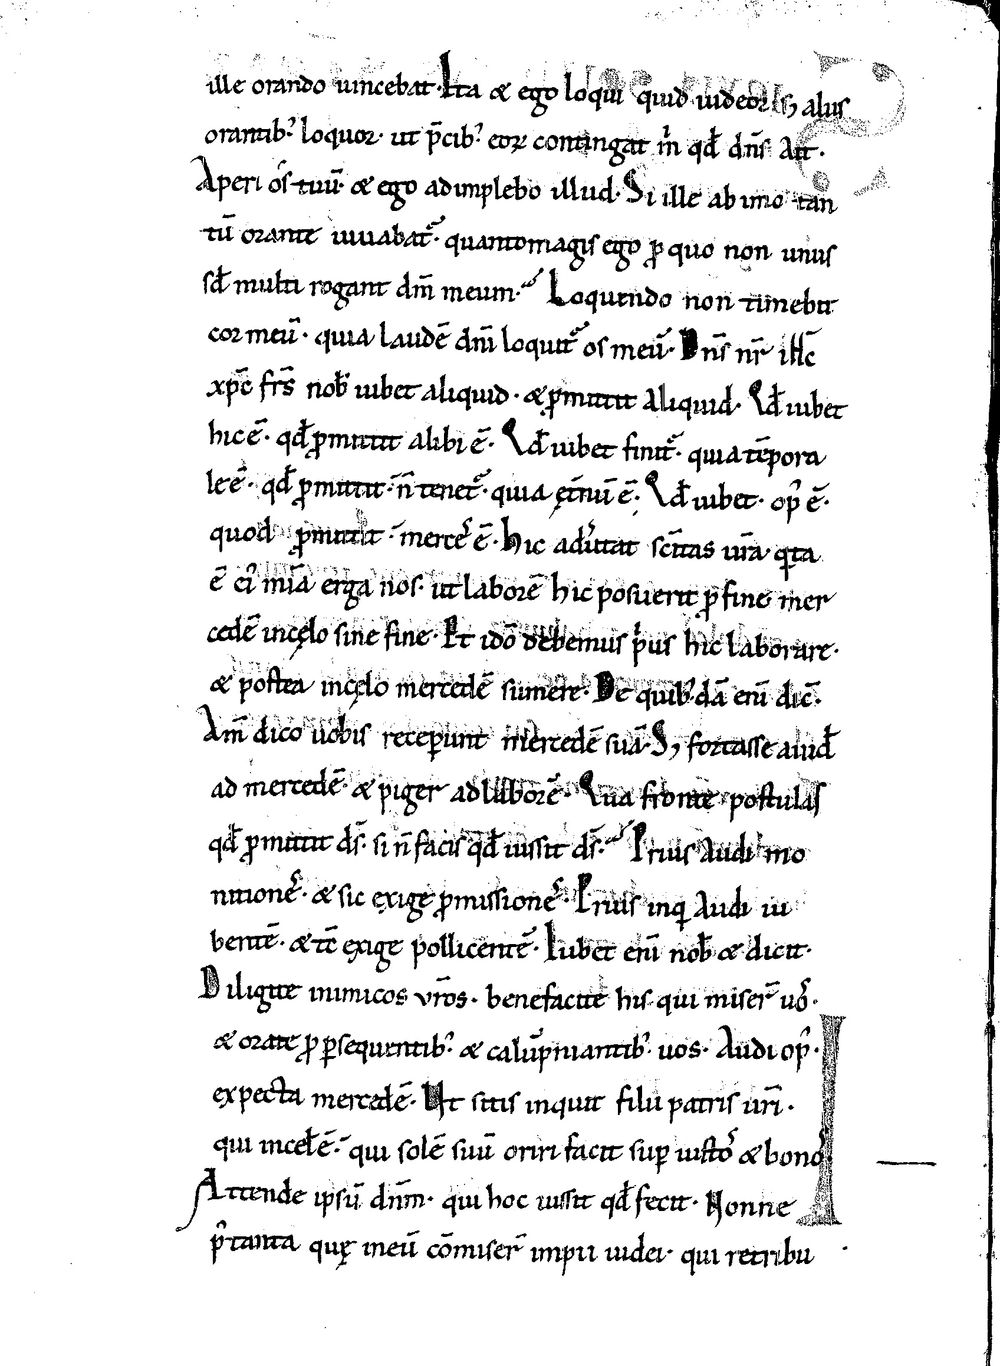 ille orando uincebat. Ita & ego loqui quid uideor is, aliis
orantib; loquor. ut p̄cib; eoꝝ contingat m̄ qđ dn̄s Ait.
Aperi os tuū. & ego adimplebo illud. Si ille ab uno tan
tū orante iuuabat᷑. quantomagis ego ꝓ quo non unus
sđ multi rogant dm̄ meum. Loquendo non timebit
cor meū. quia laudē dnī loquit᷑ os meū. Dn̄s nr̄ ih̄c
xp̄c frs̄ nob̄ iubet aliquid. & ꝓmittit Aliquid. Qđ iubet
hic ē. qđ ꝓmittit alibi ē. Qđ iubet finit᷑. quia tēpora
le ē. qđ ꝓmittit. n̄ tenet᷑. quia ęt̄nū ē. Qđ iubet. op᷒ ē.
quod ꝓmittit. merces ē. Hic aduertat sc̄itas ur̄a qͣta
ē ei᷒ mīa erga nos. ut laborē hic posuerit ꝓ fine mer
cedē incęlo sine fine. Et idō debemus p̓us hic laborare.
& postea incęlo mercedē sumere. De quib; dā enī dic̄.
Am̄ dico uobis receper̄unt mercedē suā. S; fortasse auid᷒
ad mercedē. & piger ad laborē. Qua fronte postulas
qđ ꝓmittit dꝰs. si n̄ facis qđ iussit dꝰs. Prius Audi mo
nitionē. & sic exige ꝓmissionē. Prius inq̄ Audi iu
bentē. & tc̄ exige pollicentē. Iubet enī nob̄ & dicit.
Diligite inimicos ur̄os. benefacite his qui miser̄ uōs.
& orate ꝓ ꝑsequentib; & calūpniantib; uos. Audi op᷒.
expecta mercedē. Ut sitis inquit filii patris ur̄i.
qui incel̄ ē. qui solē suū oriri facit suꝑ iustos & bonos.
Attende ipsū dnm̄. qui hoc iussit qđ fecit. Nonne
p᷒ tanta quę ineū cōmiser̄ impii iudei. qui retribu